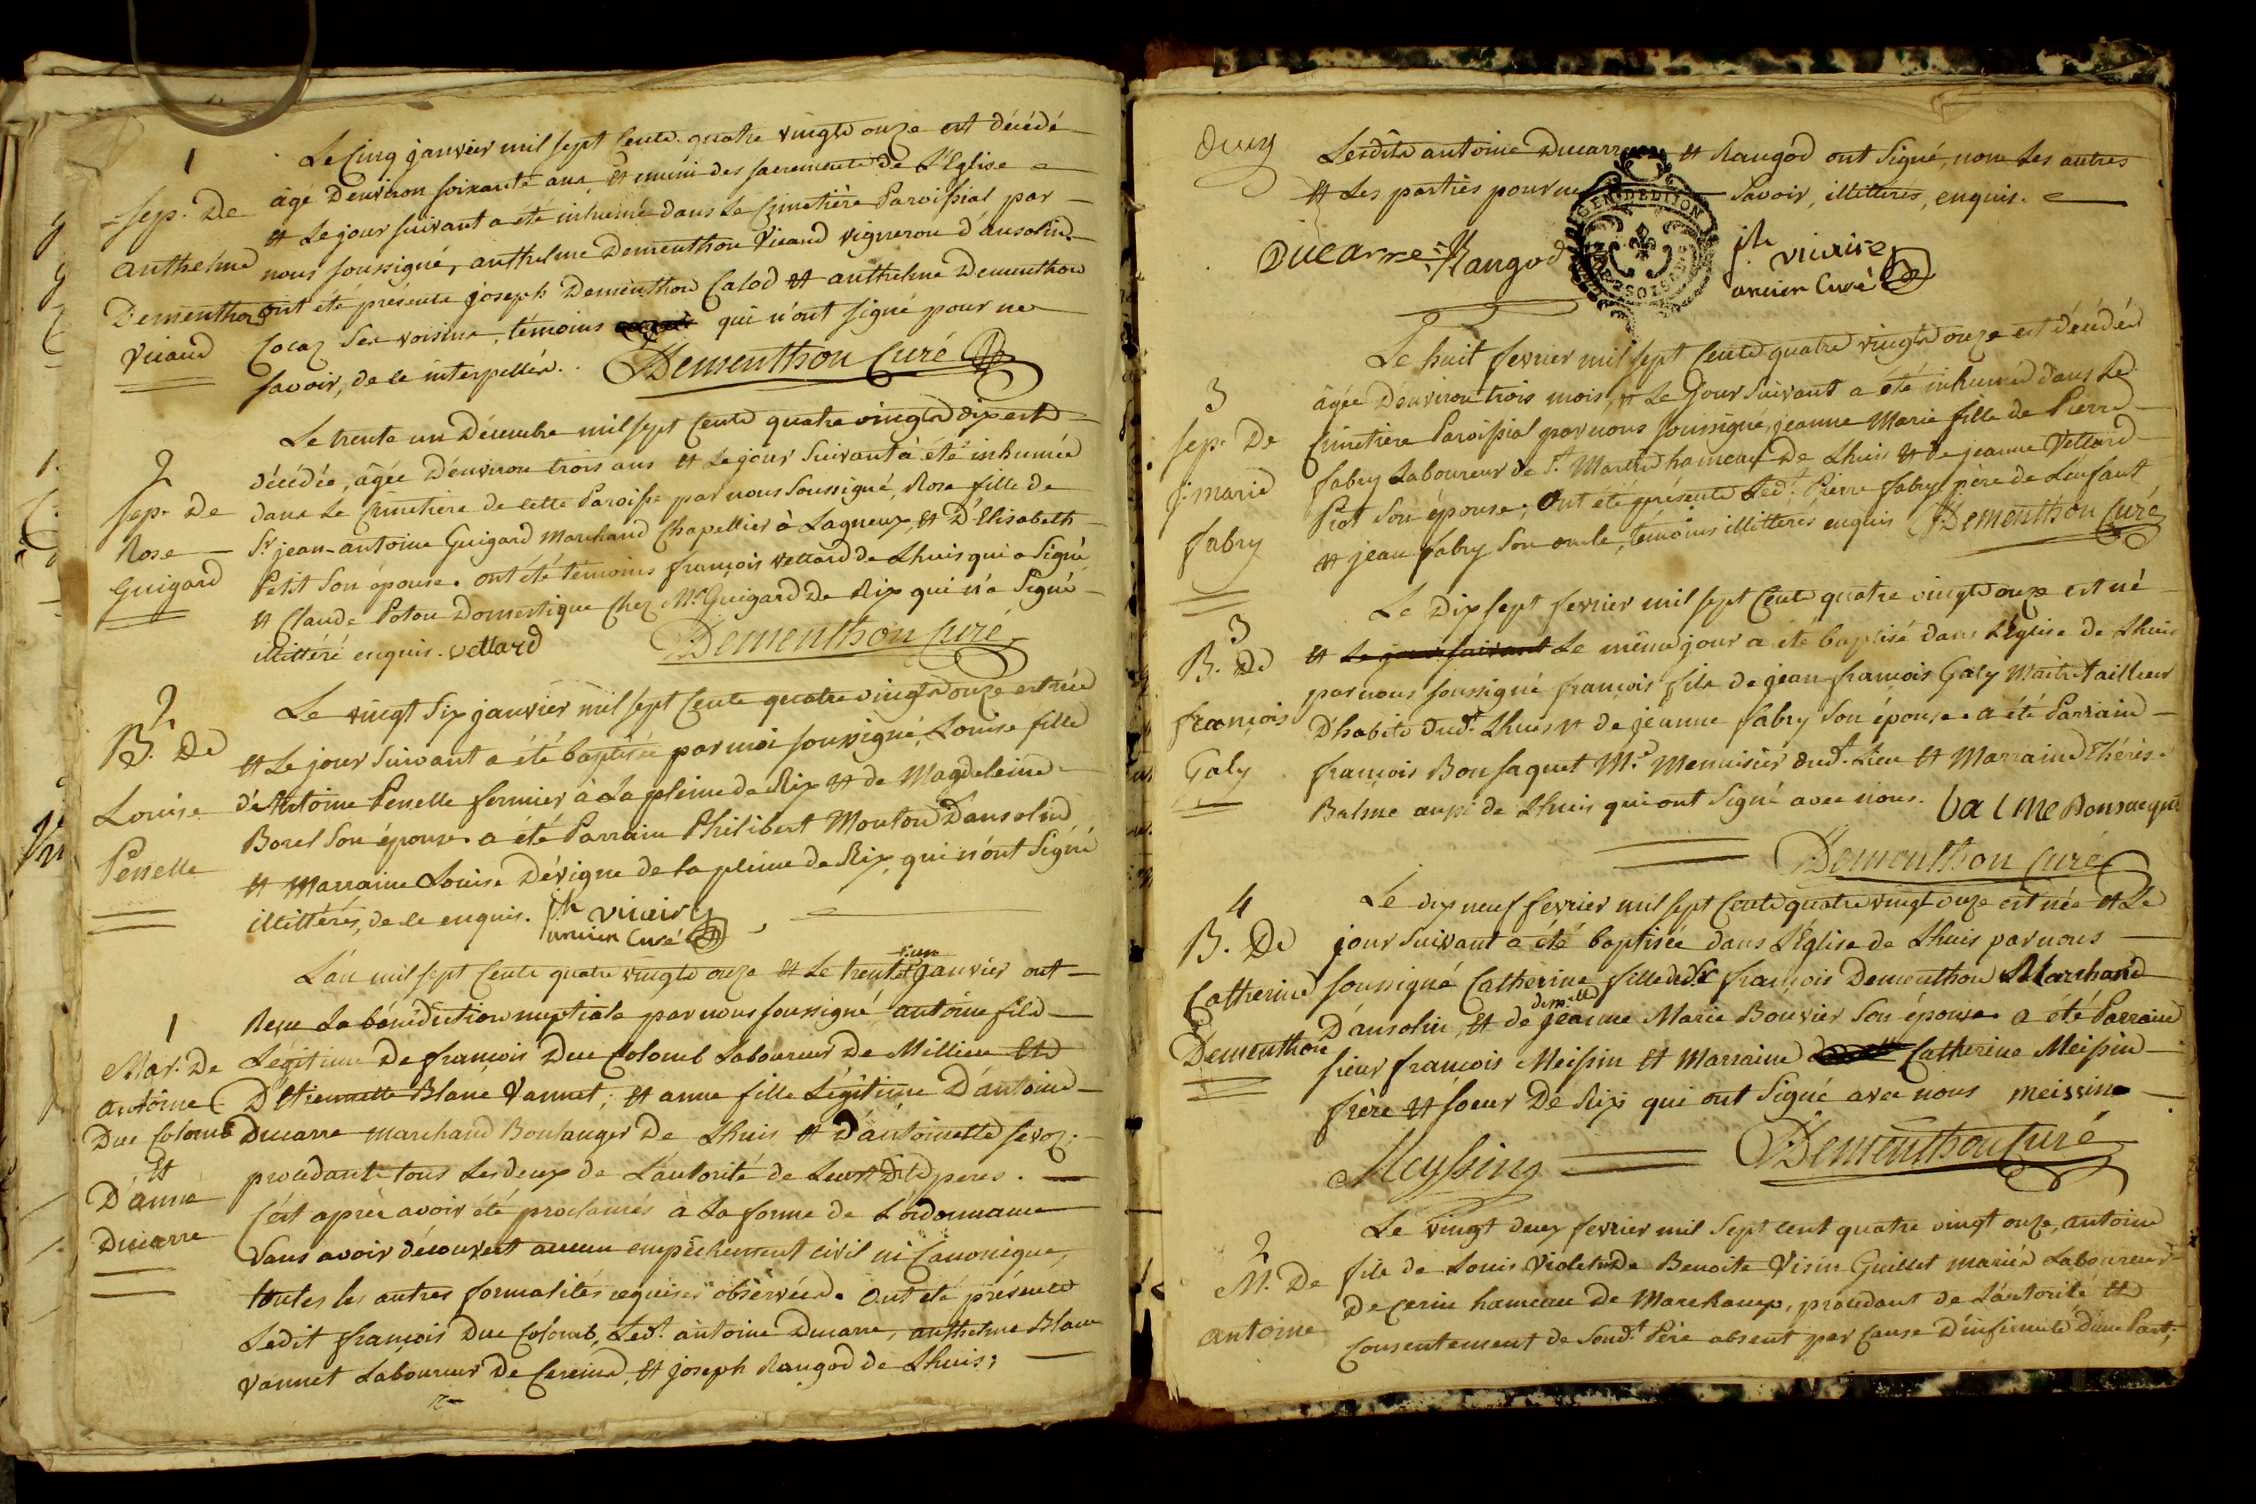 1
sep. De
anthelme
Dementhon
Vicaud
Le cinq janvier mil sept cents quatre vingts onze est décédé
âgé D'environ soixante ans, et muni des sacrements de L'Eglise
et Le jour suivant a été inhumé dans Le cimetière Paroissial par
nous soussigné, anthelme Dementhon Vicaud vigneron d'ansolin.
ont été présents joseph Dementhon Calod et anthelme Dementhon
Cocaz ses voisins, témoins qui n'ont signé pour ne
savoir, de ce interpellés. Dementhon Curé
2
sep. De
Rose
Guigard
Le trente un Décembre mil sept cents quatre vingts dix est
décédée, âgée D'environ trois ans et Le jour suivant a été inhumée
dans Le cimetière de cette Paroisse par nous soussigné, Rose fille de
Sr jean-antoine Guigard Marchand Chapellier à Lagneux, et D'Elisabeth
Petit son épouse. ont été témoins françois vettard de Lhuis qui a signé
et Claude Poton Domestique chez Mr. Guigard De Rix qui n'a signé
illittéré enquis. vettard Dementhon Curé
2
B. De
Louise
Penelle
Le vingt six janvier mil sept cents quatre vingts onze est née
et Le jour suivant a été baptisée par moi soussigné, Louise fille
d'Antoine Penelle fermier à La pleine de Rix et de Magdeleine
Borel son épouse. a été Parrain Philibert Mouton D'ansolin
et Marraine Louise Dévigne de la pleine de Rix, qui n'ont signé
illittérés, de ce enquis. jh vicaire
ancien Curé
1
Mar. De
antoine
Duc Colomb
et
D'anne
Ducarre
L'an mil sept cents quatre vingts onze et le trente et un janvier ont
Reçu La bénédiction nuptiale par nous soussigné antoine fils
Légitime De françois Duc Colomb Laboureur De Millieu et
D'Etiennette Blanc Vannet; et anne fille Légitime D'antoine
Ducarre marchand Boulanger De Lhuis et D'antoinette sevoz;
procédants tous Les deux de L'autorité de Leurs Dits peres.
C'est après avoir été proclamés à La forme de L'ordonnance
sans avoir découvert aucun empêchement civil ni Canonique,
toutes les autres formalités requises observées. Ont été présents
Ledit françois Duc Colomb, Led.t antoine Ducarre, anthelme Blanc
Vannet Laboureur De Cereine, et joseph Rangod de Lhuis;
Lesdits antoine Ducarre et Rangod ont signé, non Les autres
et Les parties pour ne savoir, illittérés, enquis.
Ducarre Rangod
GEN. DEDIION
jh vicaire
ancien Curé
3
sep. De
j. marie
fabry
Le huit fevrier mil sept cents quatre vingts onze est décédée
âgée D'environ trois mois, et Le jour suivant a été inhumée dans Le
cimetière Paroissial par nous soussigné, jeanne Marie fille de Pierre
fabry Laboureur de St. Martin hameau De Lhuis et de jeanne Vettard
Piot son épouse. Ont été présents Led.t Pierre fabry père de L'enfant
et jean fabry son oncle, témoins illitterés enquis Dementhon Curé
3
B. De
françois
Galy
Le Dix sept fevrier mil sept cents quatre vingts onze est né
et Le jour suivant Le même jour a été baptisé dans L'Eglise de Lhuis
par nous soussigné françois fils de jean françois Galy Maitre tailleur
D'habits dud.t Lhuis et de jeanne fabry son épouse. a été Parrain
françois Bonsaquet Mr. Menuisier dud.t Lieu et Marraine Thérèse
Balme aussi de Lhuis qui ont signé avec nous. balme Bonsacquet
Dementhon Curé
4
B. De
Catherine
Dementhon
Le dix neuf fevrier mil sept cents quatre vingt onze est née et Le
jour suivant a été baptisée dans L'Eglise de Lhuis par nous
soussigné Catherine fille de Sr françois Dementhon Marchand
D'ansolin, et de demlle jeanne Marie Bouvier son épouse. a été Parrain
sieur françois Meissin et Marraine Catherine Meissin
frère et soeur De Rix qui ont signé avec nous meissin
Meyssin Dementhon Curé
2
M. De
antoine
Le vingt deux fevrier mil sept cent quatre vingt onze, antoine
fils de Louis Violet et de Benoite Visin Guillet mariés Laboureurs
De Cerin hameau de Marchamp, procédant de L'autorité et
consentement de sond.t Père absent par cause D'infirmité D'une Part;